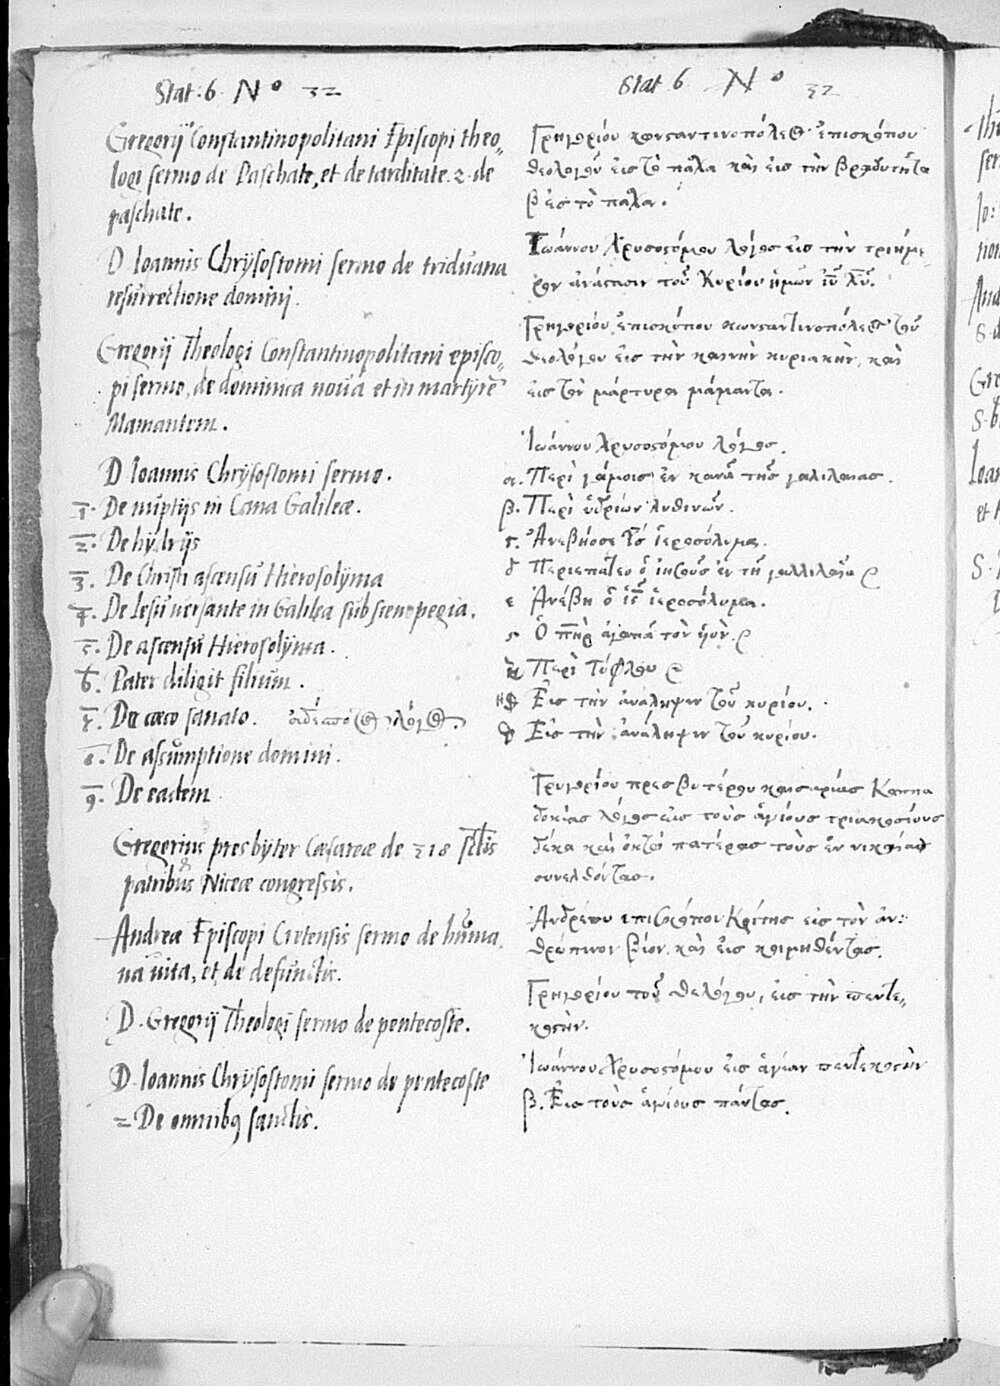 Stat: 6. Nº 32
Gregorij Constantinopolitani Episcopi theo,
logi sermo de Paschate, et de tarditate. 2. de
paschate.
D Ioannis Chrÿsostomi sermo de triduana
resurrectione domini.
Gregorij Theologi Constantinopolitani episco,
pi sermo, de dominica noua et in martyrē
Mamantem.
D. Ioannis Chrÿsostomi sermo.
1. De nuptijs in Cana Galileæ.
2. De hÿdrijs
3. De Christi ascensu Hierosolÿma
4. De Iesu uersante in Galilea sub scenopegia.
5. De ascensu Hierosolÿma.
6. Pater diligit filium.
7. De cæco sanato. ἀδέσποτος λόγος.
8. De assumptione domini.
9. De eadem
Gregorius presbÿter Cæsareæ de 318 sctis
patribus Niceæ congressis.
Andreæ Episcopi Cretensis sermo de huma,
na uita, et de defunctis.
D. Gregorij Theologi sermo de pentecoste.
D. Ioannis Chrÿsostomi sermo de pentecoste
2 De omnibus sanctis.
Stat. 6. Nº 32
Γρηγορίου κωνσαντινοπόλεως ἐπισκόπου
θεολόγου εἰς τὸ πάσχα καὶ εἰς τὴν βραδυτῆτα
β εἰς τὸ πάσχα.
Ἰωάννου χρυσοστόμου λόγος εἰς τὴν τριήμε,
ρον ἀνάστασιν τοῦ κυρίου ἡμῶν ιῦ χῦ.
Γρηγορίου ἐπισκόπου κωνσαντινοπόλεως τοῦ
θεολόγου εἰς τὴν καινὴν κυριακὴν, καὶ
εἰς τὸν μάρτυρα μάμαντα.
Ἰωάννου χρυσοστόμου λόγος.
α. Περὶ γάμοις ἐν κανᾶ τῆς γαλιλαιας.
β. Περὶ ὑδριῶν λιθινῶν.
γ. Ἀνεβήοσε εἰς ἱεροσόλυμα.
δ Περιεπάτεο ὁ ἰησοῦς ἐν τῇ γαλλιλαίᾳ
ε Ἀνέβη ὁ ιῦ ἱεροσόλυμα.
ς Ὁ πηρ ἀγαπᾶ τὸν ὑόν.
Περὶ τύφλου
η Εἰς τὴν ἀνάληψιν τοῦ κυρίου.
θ Εἰς τὴν ἀνάληψιν τοῦ κυρίου.
Γρηγορίου πρεσβυτέρου καισαρίας Καππα
δοκίας λόγος εἰς τοὺς ἁγίους τριακοσίους
δέκα καὶ ὀκτώ πατέρας τοὺς ἐν νικαίᾳ
συνελθόντας.
Ἀνδρέου ἐπισκόπου Κρίτης εἰς τὸν ἀν:
θρώπινον βίον, καὶ εἰς κοιμηθέντας.
Γρηγορίου τοῦ θελόγου, εἰς τὴν πεντε,
κοστὴν.
Ἰωάννου χρυσοσόμου εἰς ἁγίαν πεντεκοστὴν
β. Εἰς τοὺς ἁγίους πάντας.